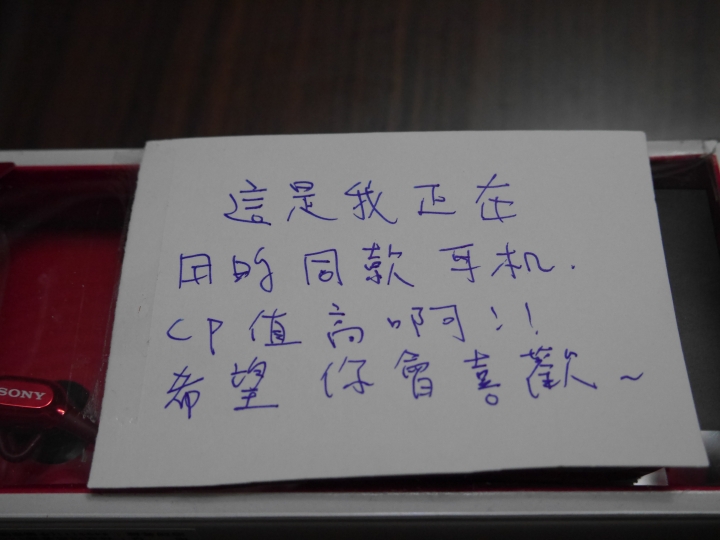 這是我正在
用的同款耳机.
CP值高啊!!
希望你會喜歡~
SONY